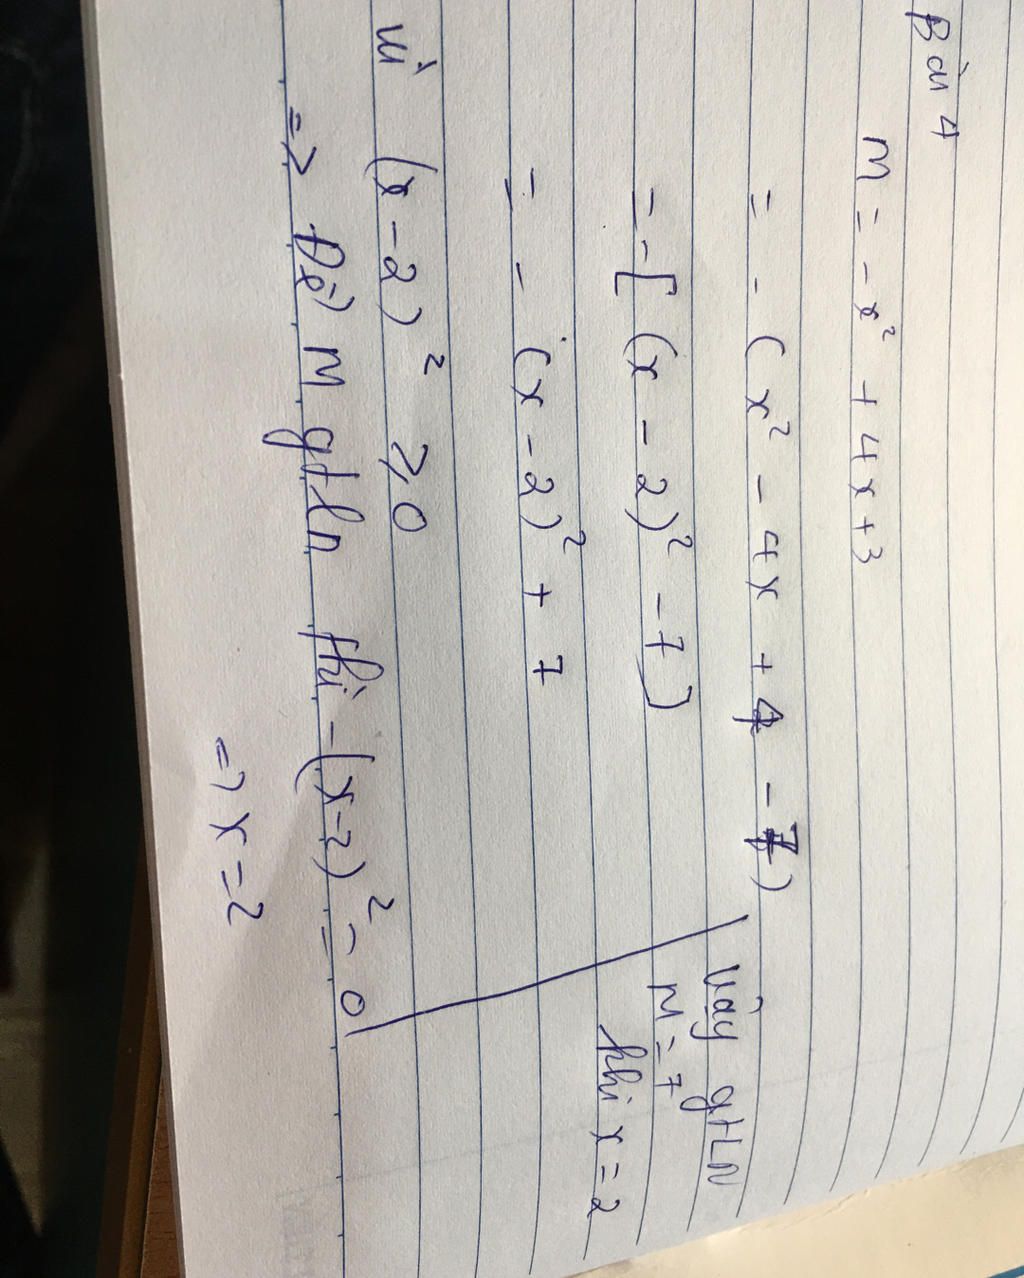 Bài 4
M = - x² + 4x + 3
= - (x² - 4x + 4 - 7)
= - [(x - 2)² - 7]
= - (x - 2)² + 7
Vì (x - 2)² ⩾ 0
=> Để M gtln thì -(x-2)² = 0
=> x = 2
Vậy gtLN
M = 7
khi x = 2